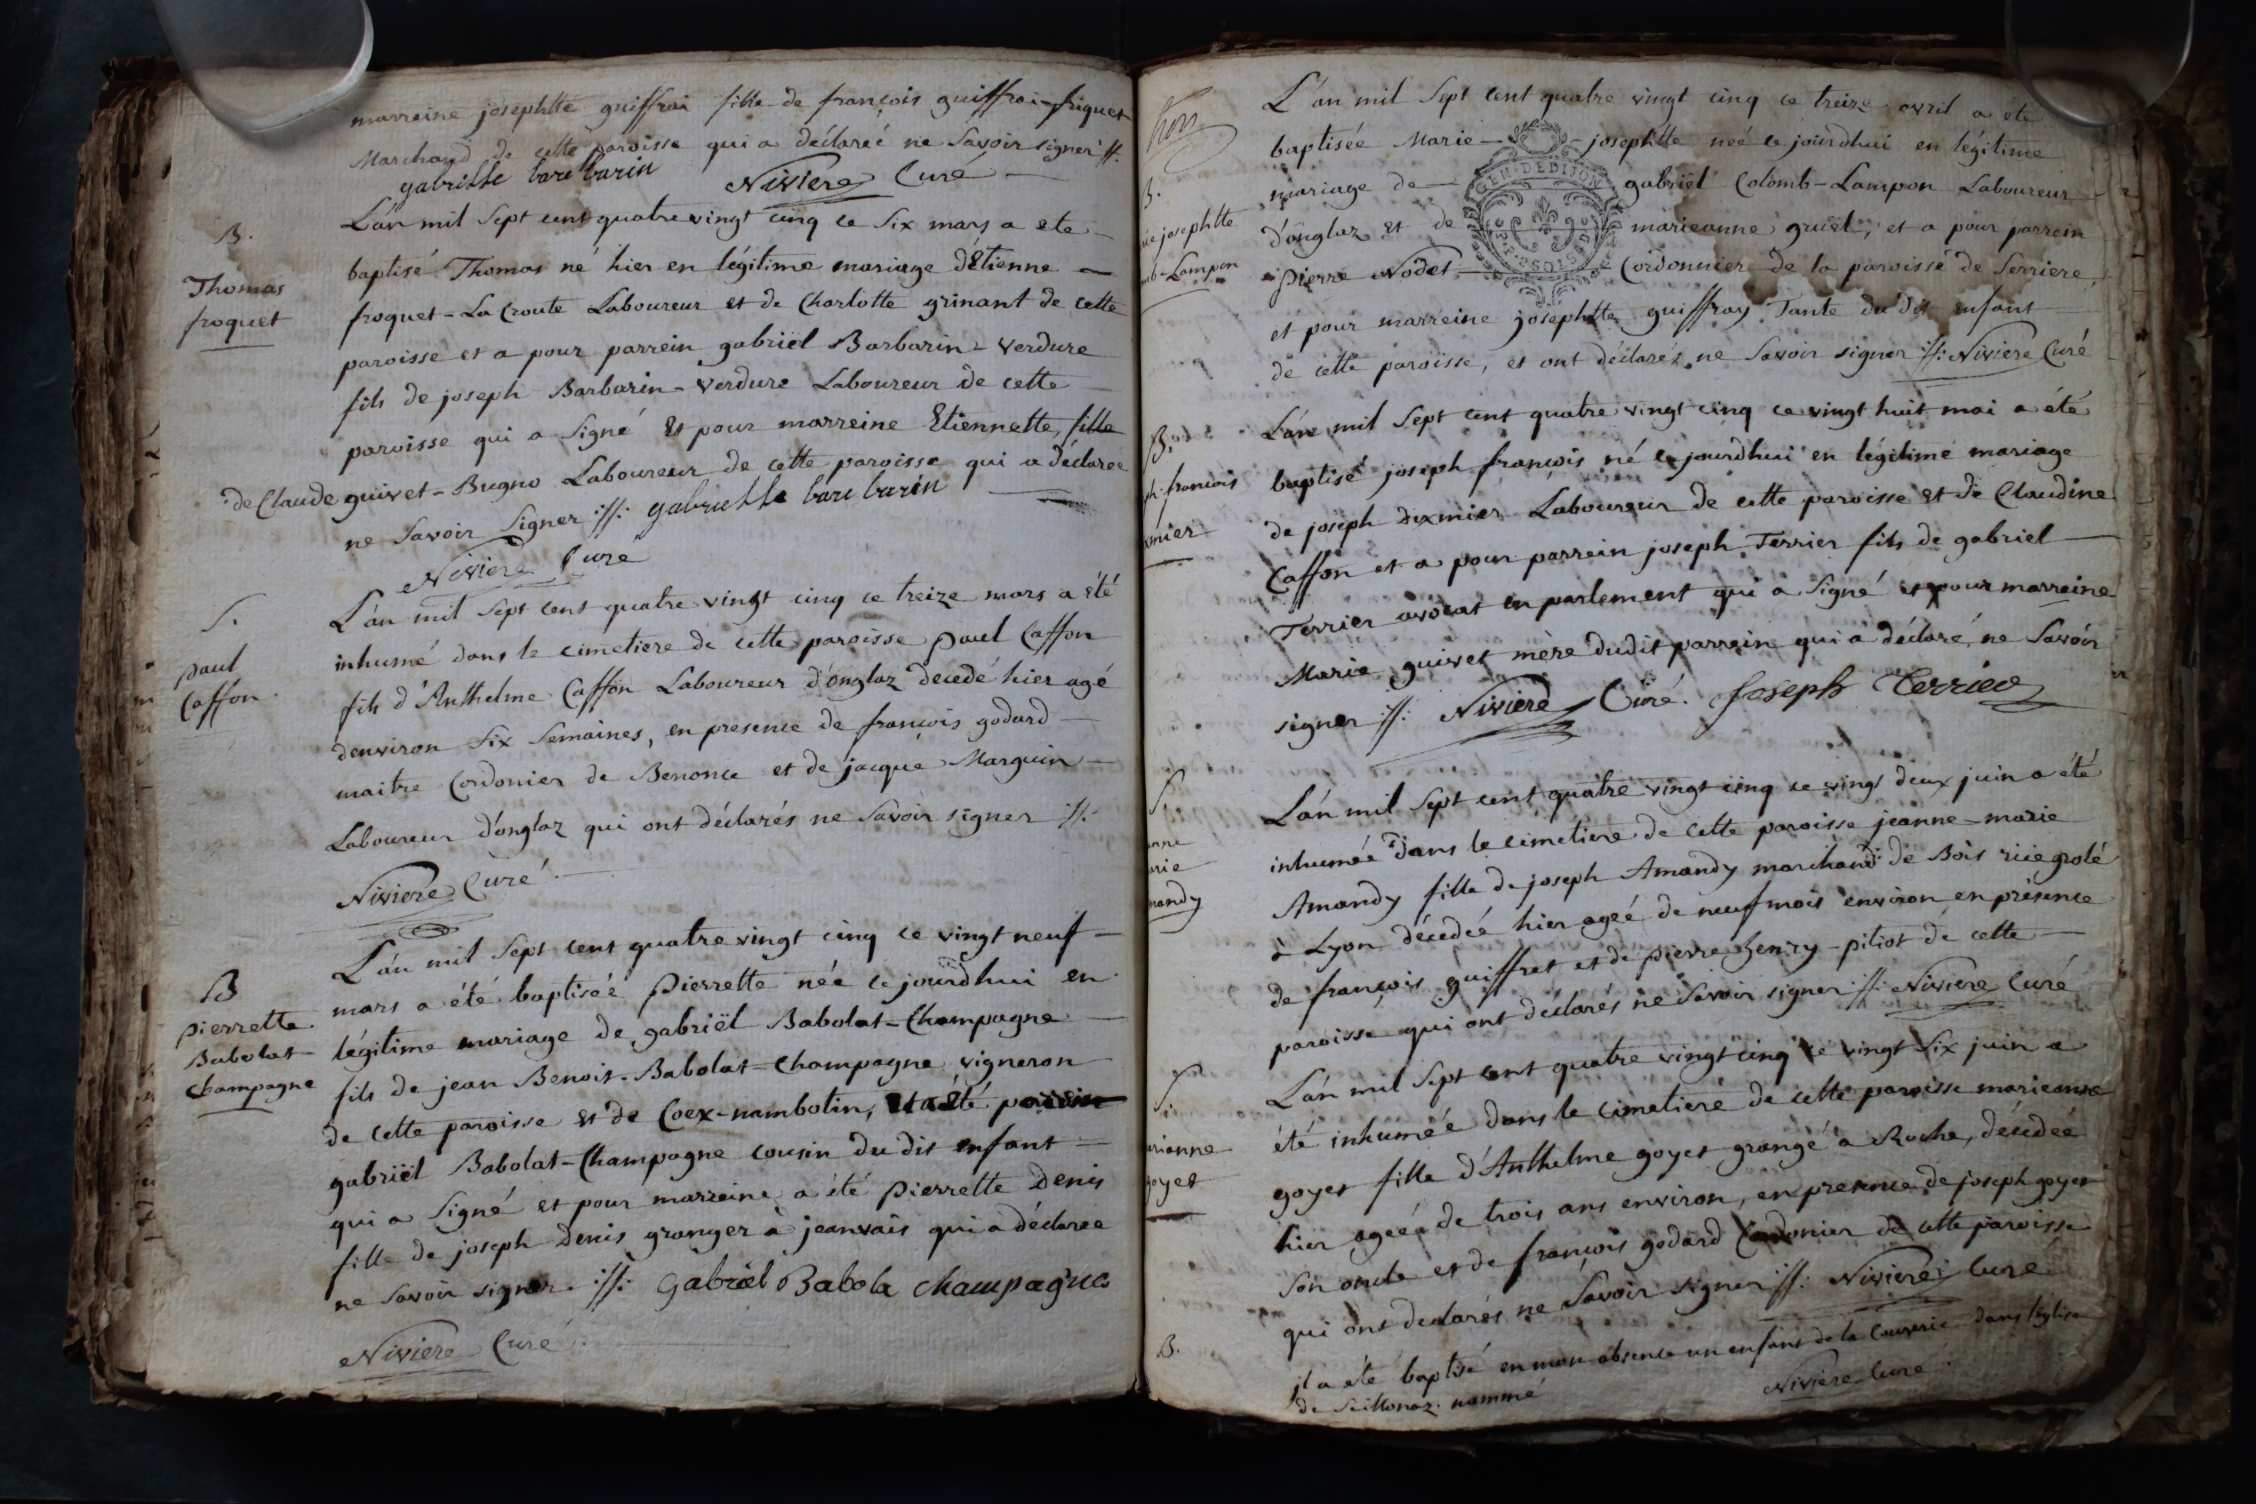 marreine josephtte guiffrai fille de françois guiffrai-friquet
Marchand de cette paroisse qui a déclareé ne Savoir signer ://:
gabrielle barbarin Niviere Curé
B.
Thomas
froquet
L'an mil Sept cent quatre vingt cinq ce Six mars a ete
baptisé Thomas né hier en légitime mariage d'Etienne
froquet-La Croute Laboureur et de Charlotte grinant de cette
paroisse et a pour parrein gabriël Barbarin-Verdure
fils de joseph Barbarin-Verdure Laboureur de cette
paroisse qui a Signé Et pour marreine Etiennette, fille
de Claude guivet-Bugno Laboureur de cette paroisse qui a déclareé
ne Savoir Signer ://: gabrielle barbarin
Niviere Curé
S.
paul
Caffon
L'an mil Sept cent quatre vingt cinq ce treize mars a été
inhumé dans le cimetiere de cette paroisse paul Caffon
fils d'Anthelme Caffon Laboureur d'onglaz decedé hier agé
denviron Six Semaines, en presence de françois godard
maitre Cordonier de Benonce et de jacque Marguin
Laboureur d'onglaz qui ont déclarés ne Savoir signer ://:
Niviere Curé
B
pierrette
Babolat
Champagne
L'an mil Sept cent quatre vingt cinq ce vingt neuf
mars a été baptiseé Pierrette née ce jourdhui en
légitime mariage de gabriël Babolat-Champagne
fils de jean Benoit-Babolat-Champagne vigneron
de cette paroisse et de Coex-nambotin, Et a été parrein
gabriël Babolat-Champagne cousin du dit enfant
qui a Signé et pour marreine a été pierrette Denis
fille de joseph Denis granger à jeanvais qui a déclareé
ne Savoir signer ://: Gabriel Babola champagne
Niviere Curé
B.
josephtte
Lampon
L'an mil Sept cent quatre vingt cinq ce treize avril a été
baptisée Marie-josephtte neé ce jourdhui en légitime
GEN. DE DIJON
mariage de gabriël Colomb-Lampon Laboureur
d'onglaz et de marieanne gruel, et a pour parrein
Pierre Nodet Cordonnier de la paroisse de Serriere,
et pour marreine josephtte guiffray Tante du dit enfant
de cette paroisse, et ont déclarés ne Savoir signer ://: Niviere Curé
B.
françois
L'an mil Sept cent quatre vingt cinq ce vingt huit mai a été
baptisé joseph françois né ce jourdhui en légitime mariage
de joseph dixmier Laboureur de cette paroisse et de Claudine
Caffon et a pour parrein joseph Terrier fils de gabriel
Terrier avocat en parlement qui a Signé et pour marreine
Marie guivet mère dudit parrein qui a déclaré ne Savoir
signer ://: Niviere Curé. Joseph Terrier
S.
L'an mil Sept cent quatre vingt cinq ce vingt deux juin a été
inhumée dans le cimetiere de cette paroisse jeanne-marie
Amandy fille de joseph Amandy marchand de Bois rüe grolé
à Lyon décedeé hier ageé de neuf mois environ en présence
de françois guiffret et de pierre henry-pitiot de cette
paroisse qui ont déclarés ne Savoir signer ://: Niviere Curé
S.
goyet
L'an mil Sept cent quatre vingt cinq ce vingt Six juin a
été inhumeé dans le cimetiere de cette paroisse marieanne
goyet fille d'Anthelme goyet grangé à Roche, décedeé
hier ageé de trois ans environ, en presence de joseph goyet
Son oncle et de françois godard Cordonier de cette paroisse
qui ont declarés ne Savoir signer ://: Niviere Curé
B.
il a été baptisé en mon absence un enfant de la Couverie dans l'eglise
de Seillonaz nommé Niviere Curé